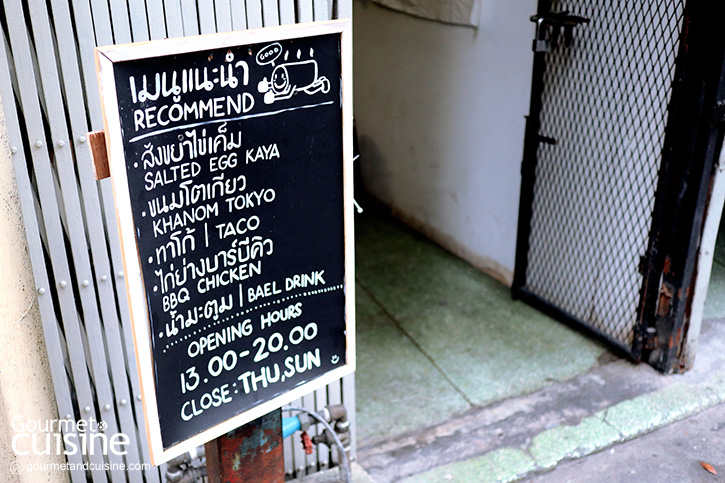 GOOD
เมนูแนะนำ
RECOMMEND
• สังขยาไข่เค็ม
SALTED EGG KAYA
• ขนมโตเกียว
KHANOM TOKYO
• ทาโก้ | TACO
• ไก่ย่างบาร์บีคิว
BBQ CHICKEN
• น้ำมะตูม | BAEL DRINK
OPENING HOURS
13.00-20.00
CLOSE: THU, SUN
Gourmet & cuisine
gourmetandcuisine.com